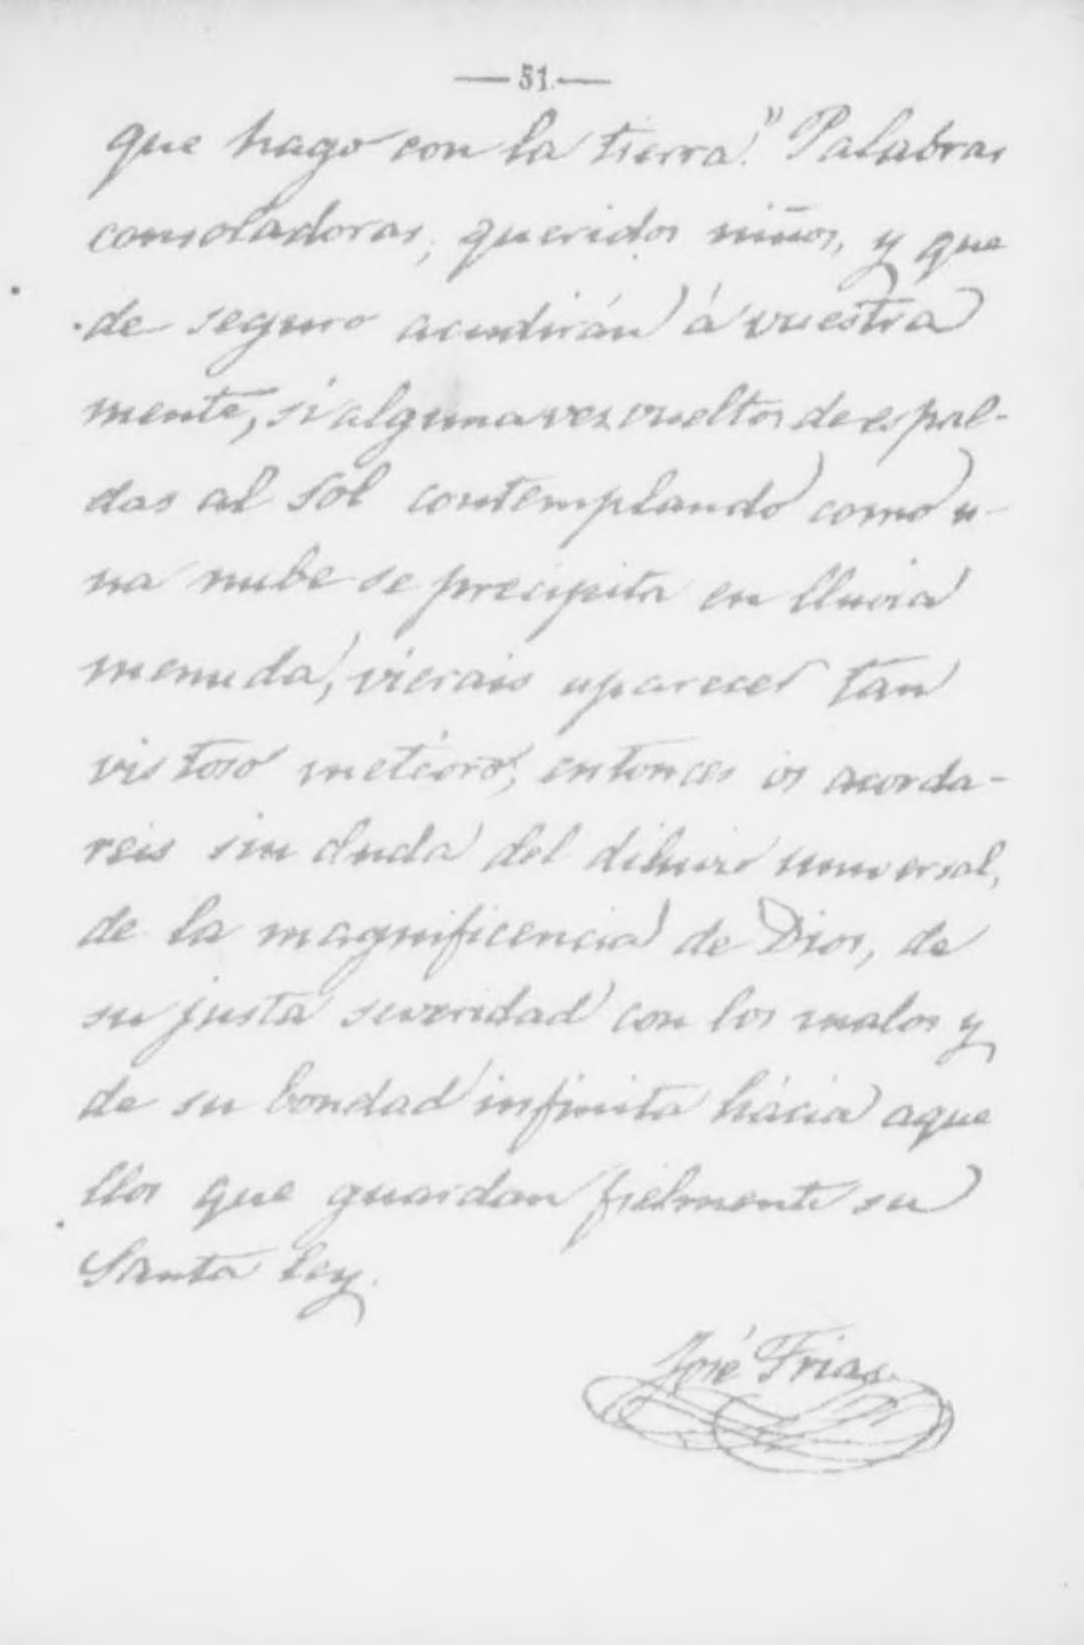 — 51 —
que hago con la tierra." Palabras
consoladoras, queridos niños, y que
de seguro acudirán á vuestra
mente, si alguna vez vueltos de espal-
das al sol contemplando como u-
na nube se precipita en lluvia
menuda, vierais aparecer tan
vistoso metéoro; entonces os acorda-
reis sin duda del diluvio universal,
de la magnificencia de Dios, de
su justa severidad con los malos y
de su bondad infinita hácia aque
llos que guardan fielmente su
Santa ley.
José Frias